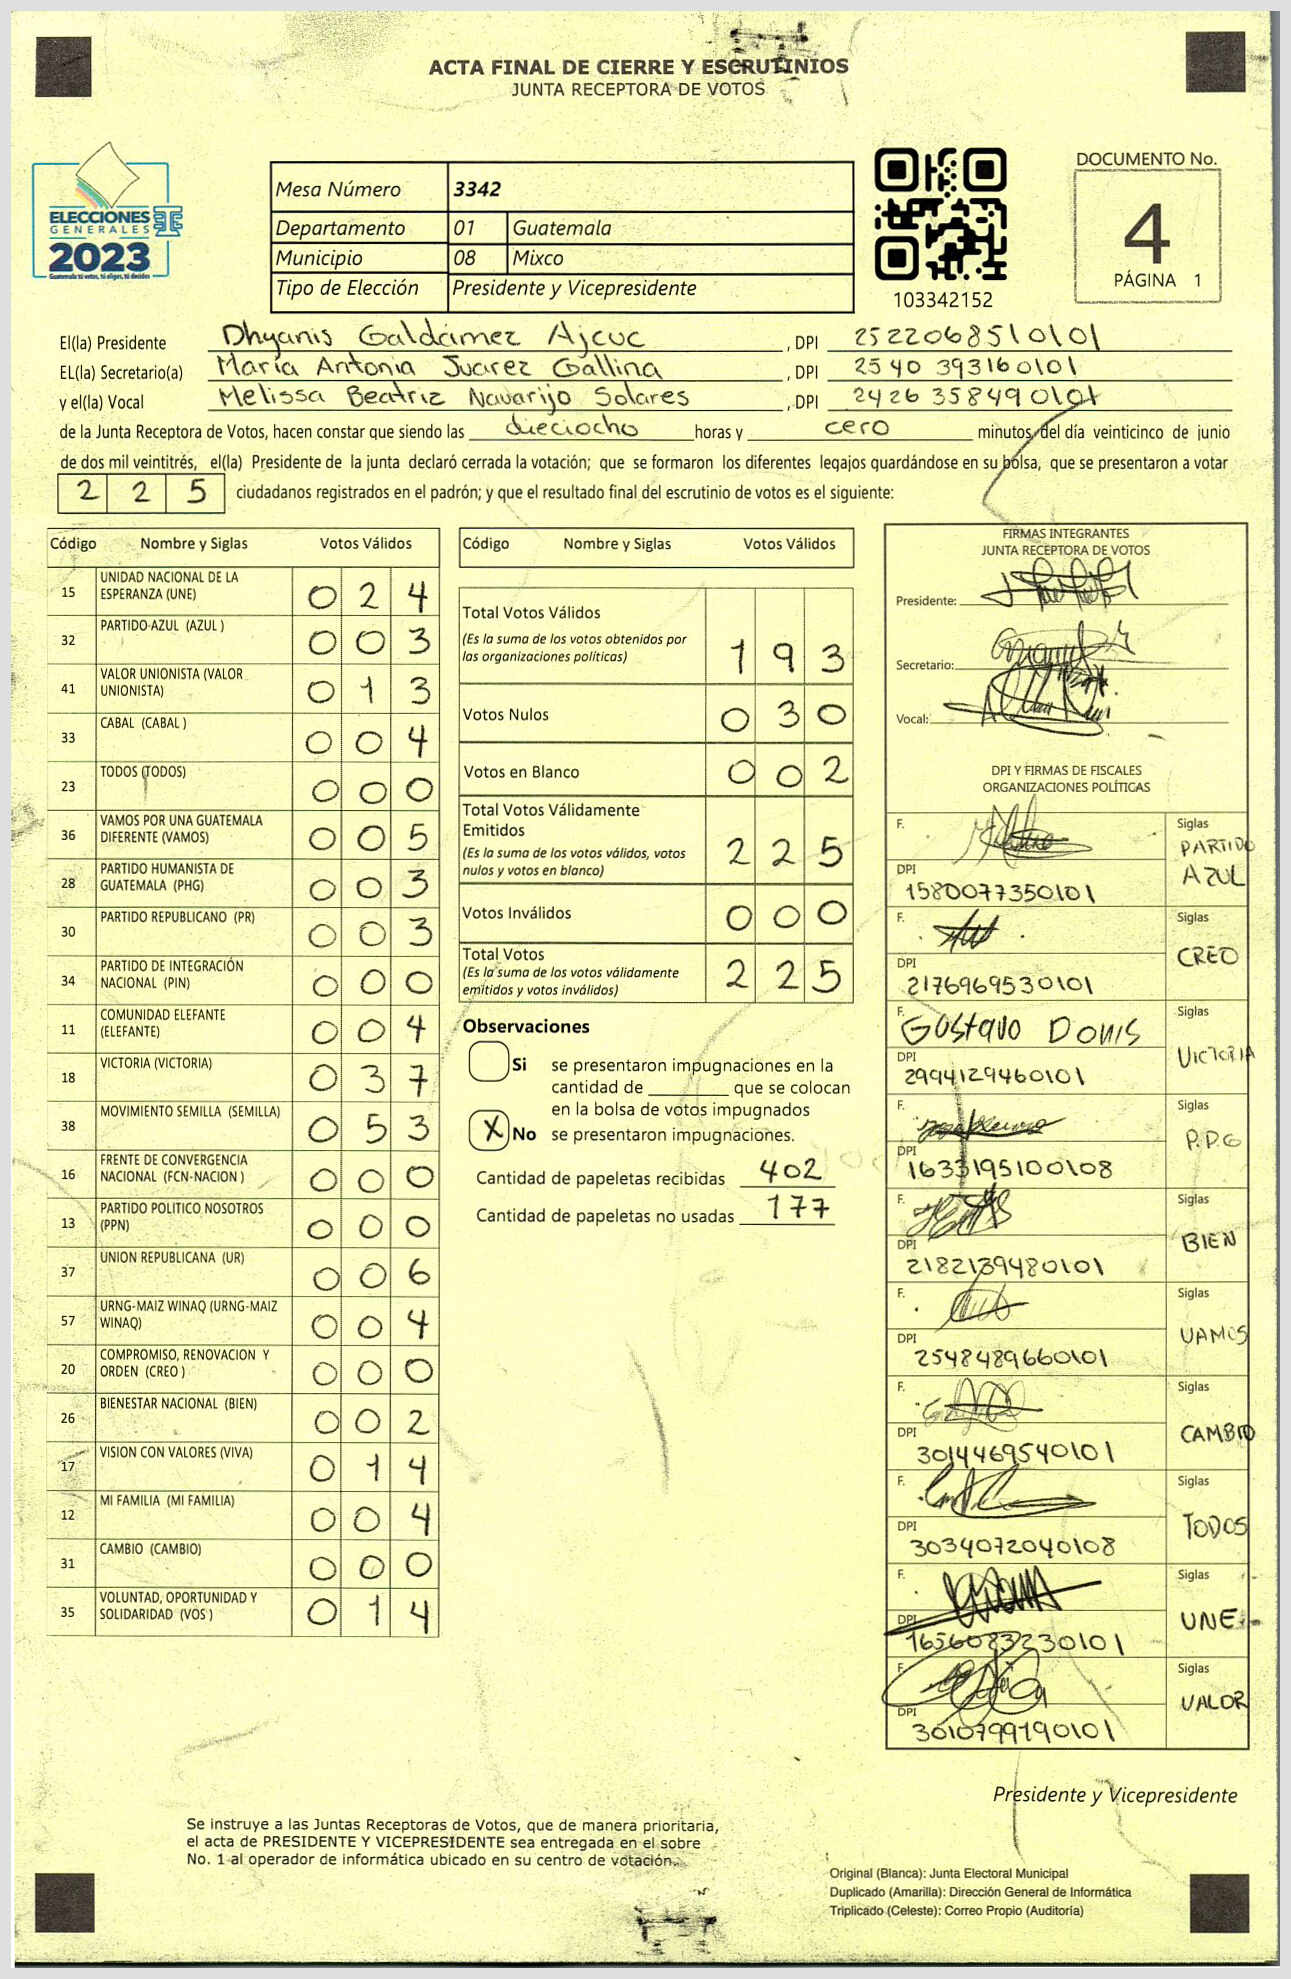 ACTA FINAL DE CIERRE Y ESCRUTINIOS
JUNTA RECEPTORA DE VOTOS
ELECCIONES
GENERALES
2023
Guatemala tú votas, tú eliges, tú decides
Mesa Número 3342
Departamento 01 Guatemala
Municipio 08 Mixco
Tipo de Elección Presidente y Vicepresidente
103342152
DOCUMENTO No.
4
PÁGINA 1
El(la) Presidente Dhyanis Galdámez Ajcuc, DPI 2522068510101
EL(la) Secretario(a) María Antonia Juarez Gallina, DPI 2540 393160101
y el(la) Vocal Melissa Beatriz Navarijo Solares, DPI 2426 358490101
de la Junta Receptora de Votos, hacen constar que siendo las dieciocho horas y cero minutos, del día veinticinco de junio
de dos mil veintitrés, el(la) Presidente de la junta declaró cerrada la votación; que se formaron los diferentes legajos guardándose en su bolsa, que se presentaron a votar
2 2 5 ciudadanos registrados en el padrón; y que el resultado final del escrutinio de votos es el siguiente:
Código Nombre y Siglas Votos Válidos
15 UNIDAD NACIONAL DE LA ESPERANZA (UNE) 0 2 4
32 PARTIDO AZUL (AZUL ) 0 0 3
41 VALOR UNIONISTA (VALOR UNIONISTA) 0 1 3
33 CABAL (CABAL ) 0 0 4
23 TODOS (TODOS) 0 0 0
36 VAMOS POR UNA GUATEMALA DIFERENTE (VAMOS) 0 0 5
28 PARTIDO HUMANISTA DE GUATEMALA (PHG) 0 0 3
30 PARTIDO REPUBLICANO (PR) 0 0 3
34 PARTIDO DE INTEGRACIÓN NACIONAL (PIN) 0 0 0
11 COMUNIDAD ELEFANTE (ELEFANTE) 0 0 4
18 VICTORIA (VICTORIA) 0 3 7
38 MOVIMIENTO SEMILLA (SEMILLA) 0 5 3
16 FRENTE DE CONVERGENCIA NACIONAL (FCN-NACION ) 0 0 0
13 PARTIDO POLITICO NOSOTROS (PPN) 0 0 0
37 UNION REPUBLICANA (UR) 0 0 6
57 URNG-MAIZ WINAQ (URNG-MAIZ WINAQ) 0 0 4
20 COMPROMISO, RENOVACION Y ORDEN (CREO ) 0 0 0
26 BIENESTAR NACIONAL (BIEN) 0 0 2
17 VISION CON VALORES (VIVA) 0 1 4
12 MI FAMILIA (MI FAMILIA) 0 0 4
31 CAMBIO (CAMBIO) 0 0 0
35 VOLUNTAD, OPORTUNIDAD Y SOLIDARIDAD (VOS ) 0 1 4
Código Nombre y Siglas Votos Válidos
Total Votos Válidos
(Es la suma de los votos obtenidos por
las organizaciones políticas) 1 9 3
Votos Nulos 0 3 0
Votos en Blanco 0 0 2
Total Votos Válidamente
Emitidos
(Es la suma de los votos válidos, votos
nulos y votos en blanco) 2 2 5
Votos Inválidos 0 0 0
Total Votos
(Es la suma de los votos válidamente
emitidos y votos inválidos) 2 2 5
Observaciones
Si se presentaron impugnaciones en la
cantidad de ________ que se colocan
en la bolsa de votos impugnados
X No se presentaron impugnaciones.
Cantidad de papeletas recibidas 402
Cantidad de papeletas no usadas 177
FIRMAS INTEGRANTES
JUNTA RECEPTORA DE VOTOS
Presidente:
Secretario:
Vocal:
DPI Y FIRMAS DE FISCALES
ORGANIZACIONES POLÍTICAS
F. Siglas
PARTIDO
AZUL
DPI
1580077350101
F. Siglas
CREO
DPI
2176969530101
F. Gustavo Donis Siglas
VICTORIA
DPI
2994129460101
F. Siglas
P.P.G
DPI
1633195100108
F. Siglas
BIEN
DPI
2182139480101
F. Siglas
VAMOS
DPI
2548489660101
F. Siglas
CAMBIO
DPI
3014469540101
F. Siglas
TODOS
DPI
3034072040108
F. Siglas
UNE
DPI
1656083230101
F. Siglas
VALOR
DPI
3010799190101
Presidente y Vicepresidente
Se instruye a las Juntas Receptoras de Votos, que de manera prioritaria,
el acta de PRESIDENTE Y VICEPRESIDENTE sea entregada en el sobre
No. 1 al operador de informática ubicado en su centro de votación.
Original (Blanca): Junta Electoral Municipal
Duplicado (Amarilla): Dirección General de Informática
Triplicado (Celeste): Correo Propio (Auditoría)